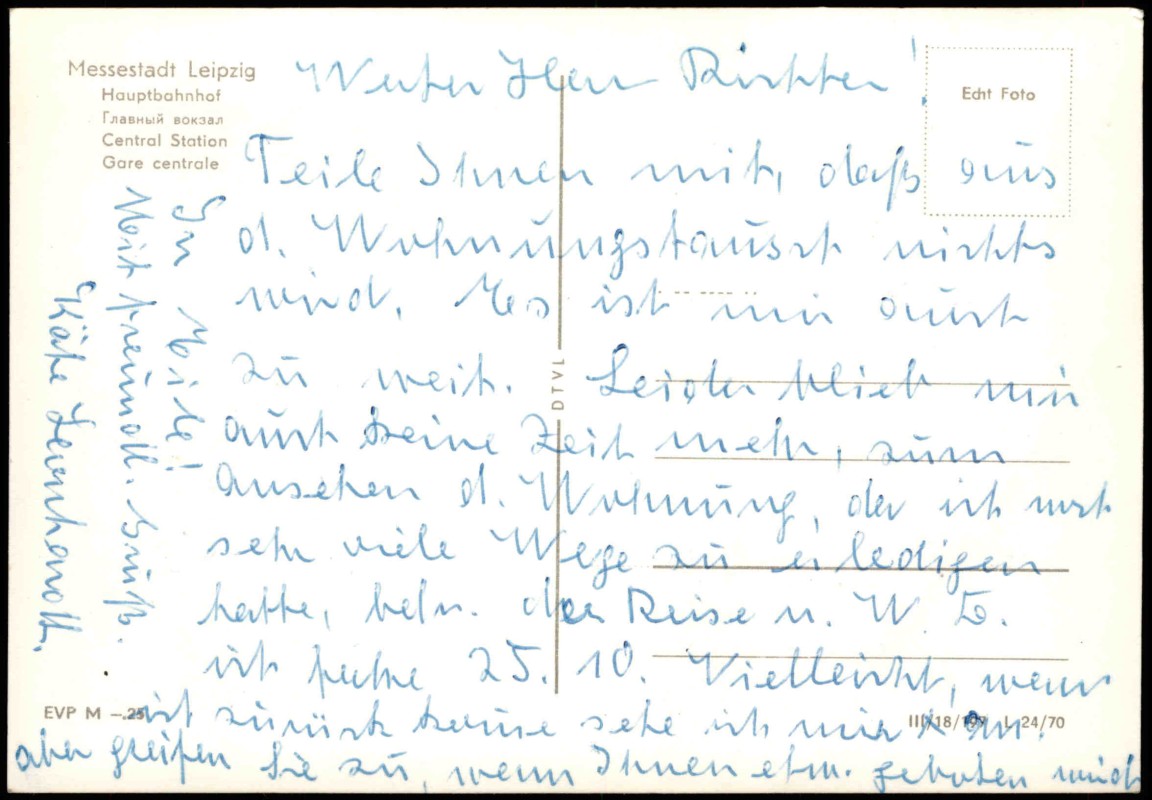 Messestadt Leipzig
Hauptbahnhof
Главный вокзал
Central Station
Gare centrale
Echt Foto
Werter Herr Richter!
Teile Ihnen mit, daß aus
d. Wohnungstausch nichts
wird. Es ist mir auch
zu weit. Leider blieb mir
auch keine Zeit mehr, zum
Ansehen d. Wohnung, da ich noch
sehr viele Wege zu erledigen
hatte, betr. der Reise n. W. D.
ich fahre 25. 10. Vielleicht, wenn
ich zurück komme sehe ich mir an.
aber greifen Sie zu, wenn Ihnen etw. geboten wird
In Eile!
Mit freundl. Gruß.
Käte
DTVL
EVP M –.25
III/18/197 L 24/70